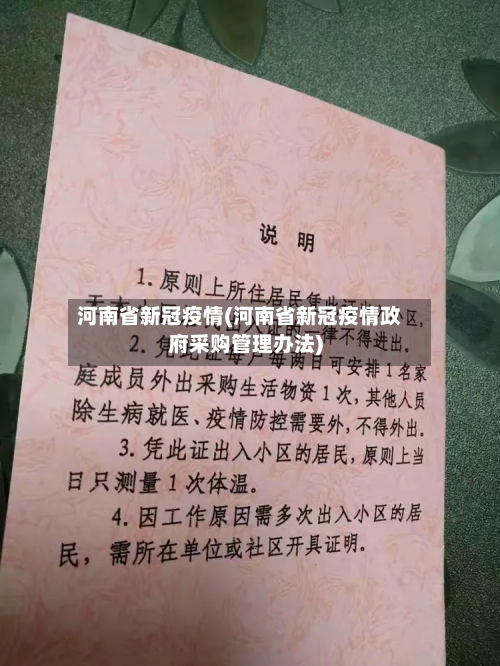 说 明
1.原则上所住居民凭此证
区,
律不得进出。
河南省新冠疫情(河南省新冠疫情政
府采购管理办法)
2.凭此证每户每两日可安排1名家
庭成员外出采购生活物资1次,其他人员
除生病就医、疫情防控需要外,不得外出。
3.凭此证出入小区的居民,原则上当
日只测量1次体温。
4.因工作原因需多次出入小区的居
民,需所在单位或社区开具证明。